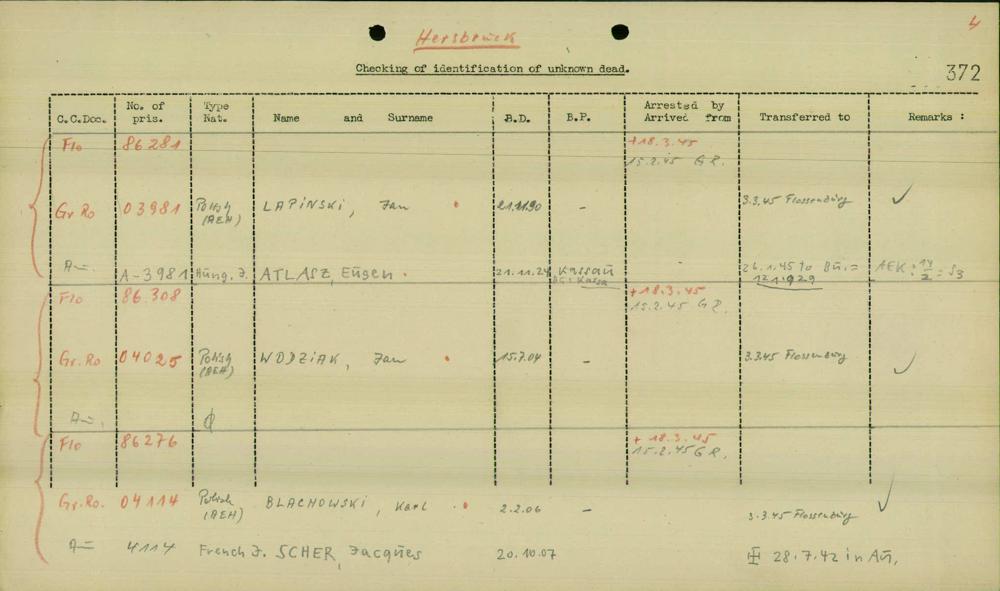 4
Hersbruck
Checking of identification of unknown dead.
372
C.C.Doc. No. of pris. Type Nat. Name and Surname B.D. B.P. Arrested by Arrived from Transferred to Remarks :
Flo 86281 +18.3.45
15.2.45 G R.
Gr Ro 03981 Polish (AEH) LAPINSKI, Jan 21.11.90 – 3.3.45 Flossenbürg ✓
Au. A-3981 Hung. J. ATLASZ, Eugen 21.11.24 Kassau 26.1.45 to Bu. =
Kassa 121.929
Flo 86308 +18.3.45
15.2.45 G R.
Gr. Ro 04025 Polish (AEH) WODZIAK, Jan 15.7.04 – 3.3.45 Flossenbürg ✓
Au.
Flo 86276 + 18.3.45
15.2.45 G R.
Gr. Ro. 04114 Polish (AEH) BLACHOWSKI, Karl 2.2.06 – 3.3.45 Flossenbürg ✓
Au 4114 French J. SCHER, Jacques 20.10.07 28.7.42 in Au.